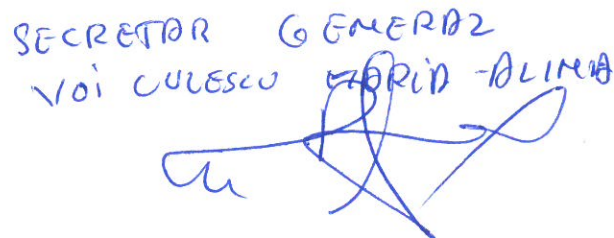 SECRETAR GENERAL
VOICULESCU MARIA-ALINA